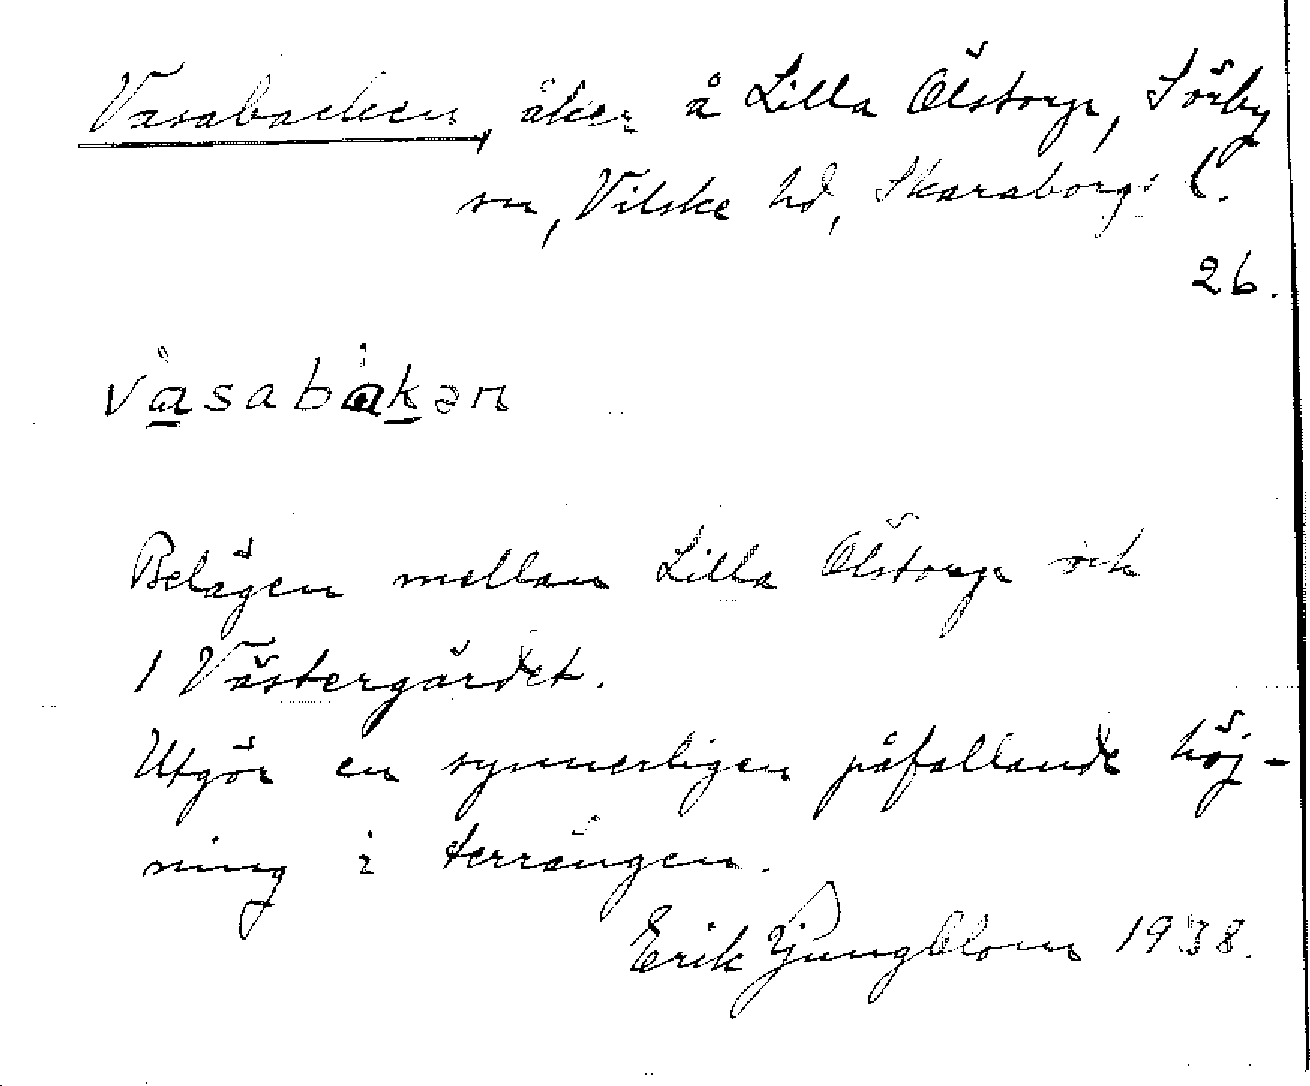 Vasabacken, åker å Lilla Ölstorp, Sörby
sn, Vilske hd, Skaraborgs l.
26.
våsabåkən
Belägen mellan Lilla Ölstorp och
1 Västergärdet.
Utgör en synnerligen påfallande höj-
ning i terrängen.
Erik Ljungblom 1938.